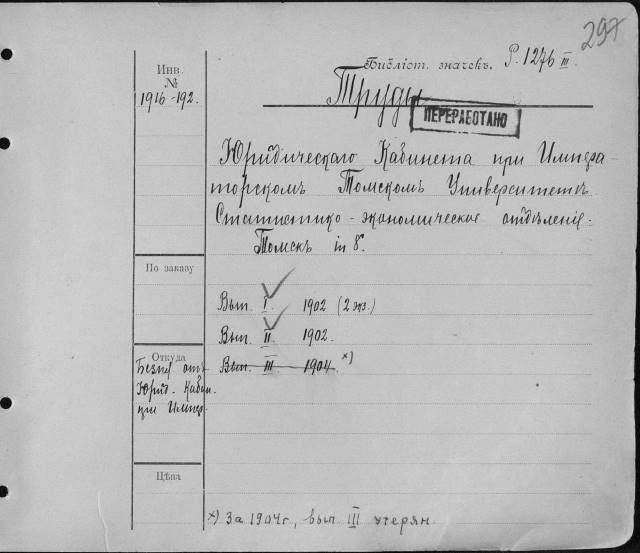 297
Библіот. значекъ. Р. 1276 III
Инв.
№
1916-192.
Труды
ПЕРЕРАБОТАНО
Юридическаго Кабинета при Импера-
торскомъ Томскомъ Университетѣ
Статистико-экономическое отдѣленіе.
Томскъ in 8°.
По заказу
Вып. I 1902 (2 экз.)
Вып. II 1902.
Вып. III 1904. *)
Откуда
Безпл. отъ
Юрид. Кабин.
при Импер.
Цѣна
*) За 1904г, вып III утерян.